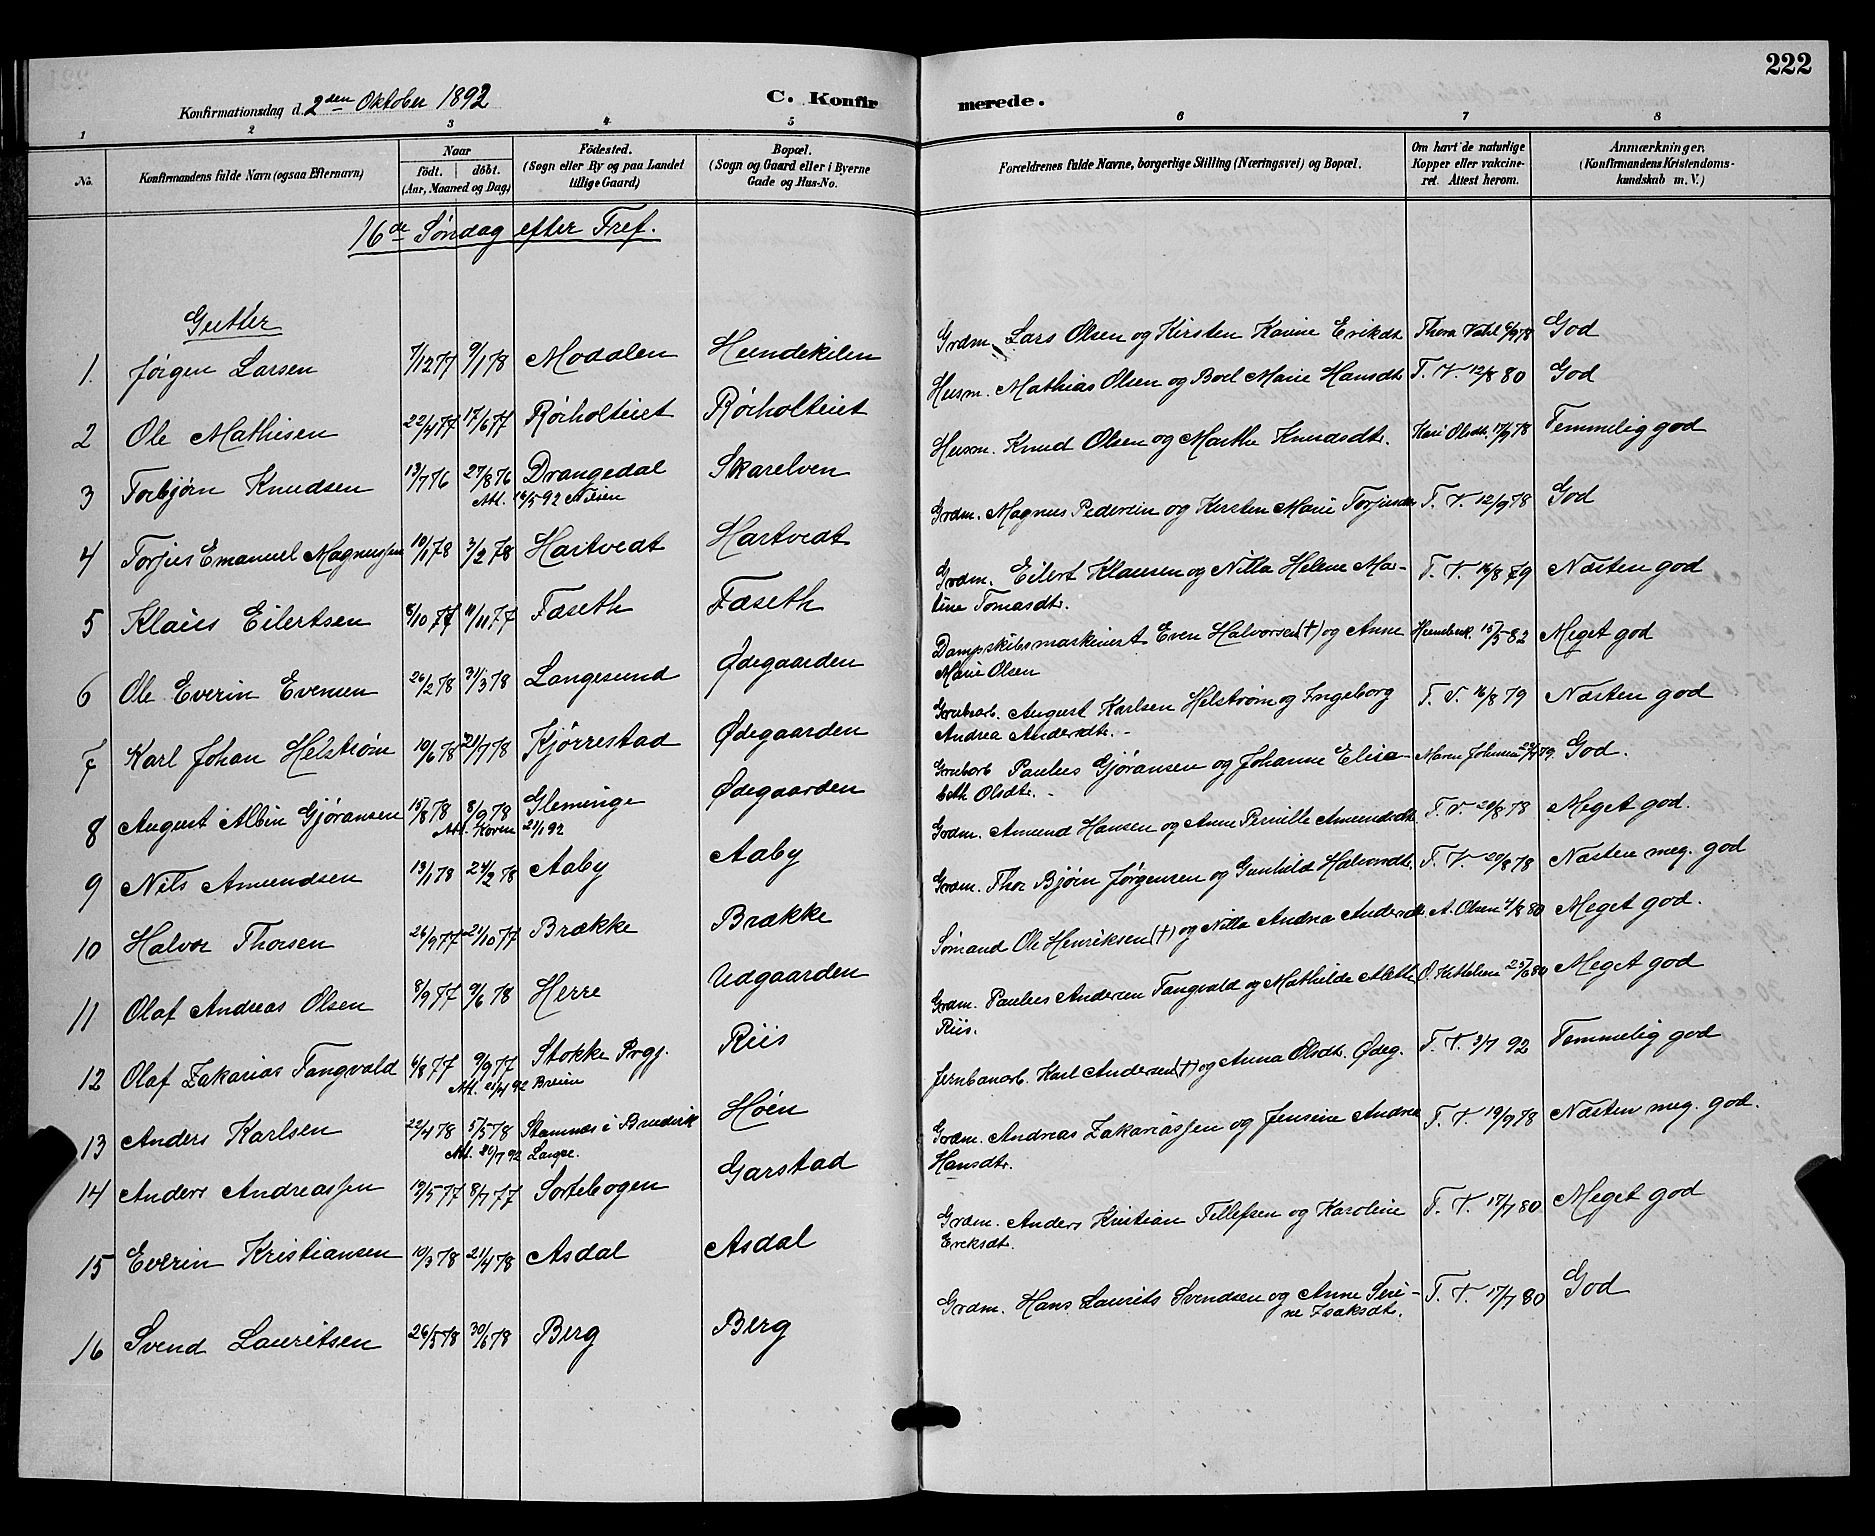 222
Konfirmationsdag d. 2den Oktober 1892
C. Konfirmerede.
1 2 3 4 5 6 7 8
No. Konfirmandens fulde Navn (ogsaa Efternavn) Naar födt. döbt. (Aar, Maaned og Dag) Födested. (Sogn eller By og paa Landet tillige Gaard) Bopæl. (Sogn og Gaard eller i Byerne Gade og Hus-No. Forældrenes fulde Navne, borgerlige Stilling (Næringsvei) og Bopæl. Om havt de naturlige Kopper eller vakcineret. Attest herom. Anmærkninger. (Konfirmandens Kristendomskundskab m. V.)
16de Søndag efter Tref.
Gutter
1. Jörgen Larsen 7/12 77 9/1 78 Modalen Hundekilen Grdm. Lars Olsen og Kirsten Karine Eriksdt. Thora Vahl 6/9 78 God
2 Ole Mathisen 22/4 77 17/6 77 Rörholteiet Rörholteiet Husm. Mathias Olsen og Boel Marie Hansdt. T. V. 12/8 80 God
3 Torbjørn Knudsen 13/7 76 27/8 76 Drangedal Skarelven Husm. Knud Olsen og Marthe Knudsdt. Kari Olsdt. 17/9 78 Temmelig god
Att. 14/5 92 Nilsen
4 Torjus Emanuel Magnussen 10/1 78 3/2 78 Hartvedt Hartvedt Grdm. Magnus Pedersen og Kirsten Marie Torjusdtr T. V. 12/9 78 God
5 Klaus Eilertsen 8/10 77 11/11 77 Faseth Faseth Grdm. Eilert Klausen og Nilla Helene Mar-
tine Tomasdtr. T. V. 16/8 79 Næsten god
6 Ole Everin Evensen 26/2 78 31/3 78 Langesund Ødegaarden Dampskibsmaskinist Even Halvorsen (†) og Anne
Marie Olsen 15/5 82 Meget god
7 Karl Johan Helström 10/6 78 21/7 78 Kjörrestad Ødegaarden Grubearb. August Karlsen Helström og Ingeborg
Andrea Andersdtr. T. V. 16/8 79 Næsten god
8 August Albin Gjöransen 15/8 78 8/9 78 Gleminge Ødegaarden Grubarb Paulus Gjöransen og Johanne Elisa-
beth Olsdtr. Maren Johnsen 79. God.
Att. Koren 21/1 92
9 Nils Amundsen 13/1 78 24/2 78 Aaby Aaby Grdm. Amund Hansen og Anne Pernille Amundsdtr. T. V. 20/8 78 Meget god.
10 Halvor Thorsen 26/9 77 21/10 77 Brække Brække Grdm. Thor Bjørn Jörgensen og Gunhild Halvorsdt. T. V. 20/8 78 Næsten meg. god
11 Olaf Andreas Olsen 8/9 77 9/6 78 Herre Udgaarden Sömand Ole Henriksen (†) og Nilla Andrea Andersdt. A. Olsen 4/8 80 Meget god.
12 Olaf Zakarias Tangvald 6/8 77 9/9 77 Stokke Prgj. Riis Grdm. Paulus Andersen Tangvald og Mathilde Aleth
Riis. O. Kittelsen 25/6 80 Meget god
Att. 21/4 92 Breien
13 Anders Karlsen 22/4 78 5/5 78 Stamnes i Bruvik Höen Jernbanarb. Karl Andersen (†) og Anna Olsdt. Ødeg. T. V. 3/7 92 Temmelig god
Att. 20/7 92 Lange.
14 Anders Andreassen 19/5 77 8/7 77 Sortebogen Garstad Grdm. Andreas Zakariassen og Jensine Andrea
Hansdtr. T. V. 19/9 78 Næsten meg. god.
15 Everin Kristiansen 10/3 78 21/4 78 Asdal Asdal Grdm. Anders Kristian Tellefsen og Karoline
Eriksdt. T. V. 17/7 80 Meget god
16 Svend Lauritsen 26/5 78 30/6 78 Berg Berg Grdm. Hans Laurits Svendsen og Anne Seri-
ne Isaksdt. T. V. 17/7 80 God